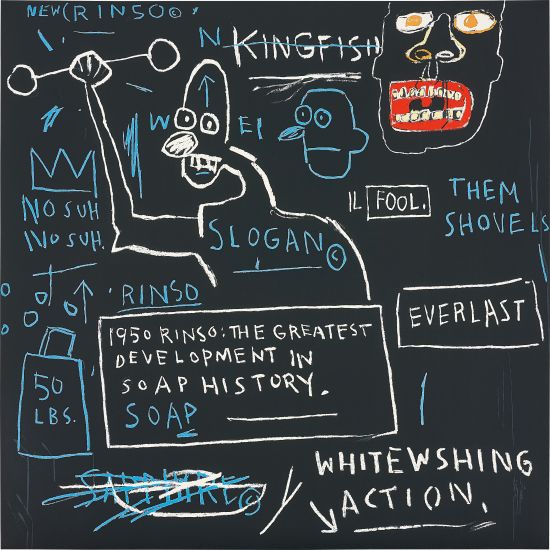 NEW(RINSO©
N KINGFISH
W E
THEM
SHOVELS
IL FOOL.
NO SUH
NO SUH.
SLOGAN©
RINSO
EVERLAST
1950 RINSO: THE GREATEST
DEVELOPMENT IN
SOAP HISTORY.
SOAP
50
LBS.
SAPPHIRE©
WHITEWSHING
ACTION.